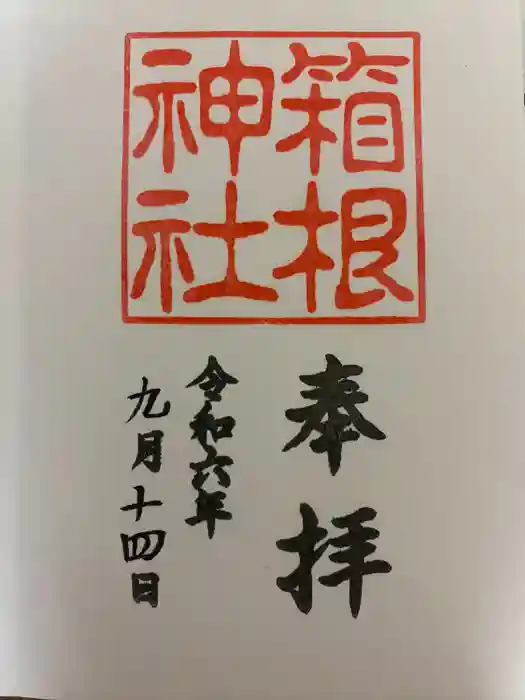 箱根
神社
奉拝
令和六年
九月十四日